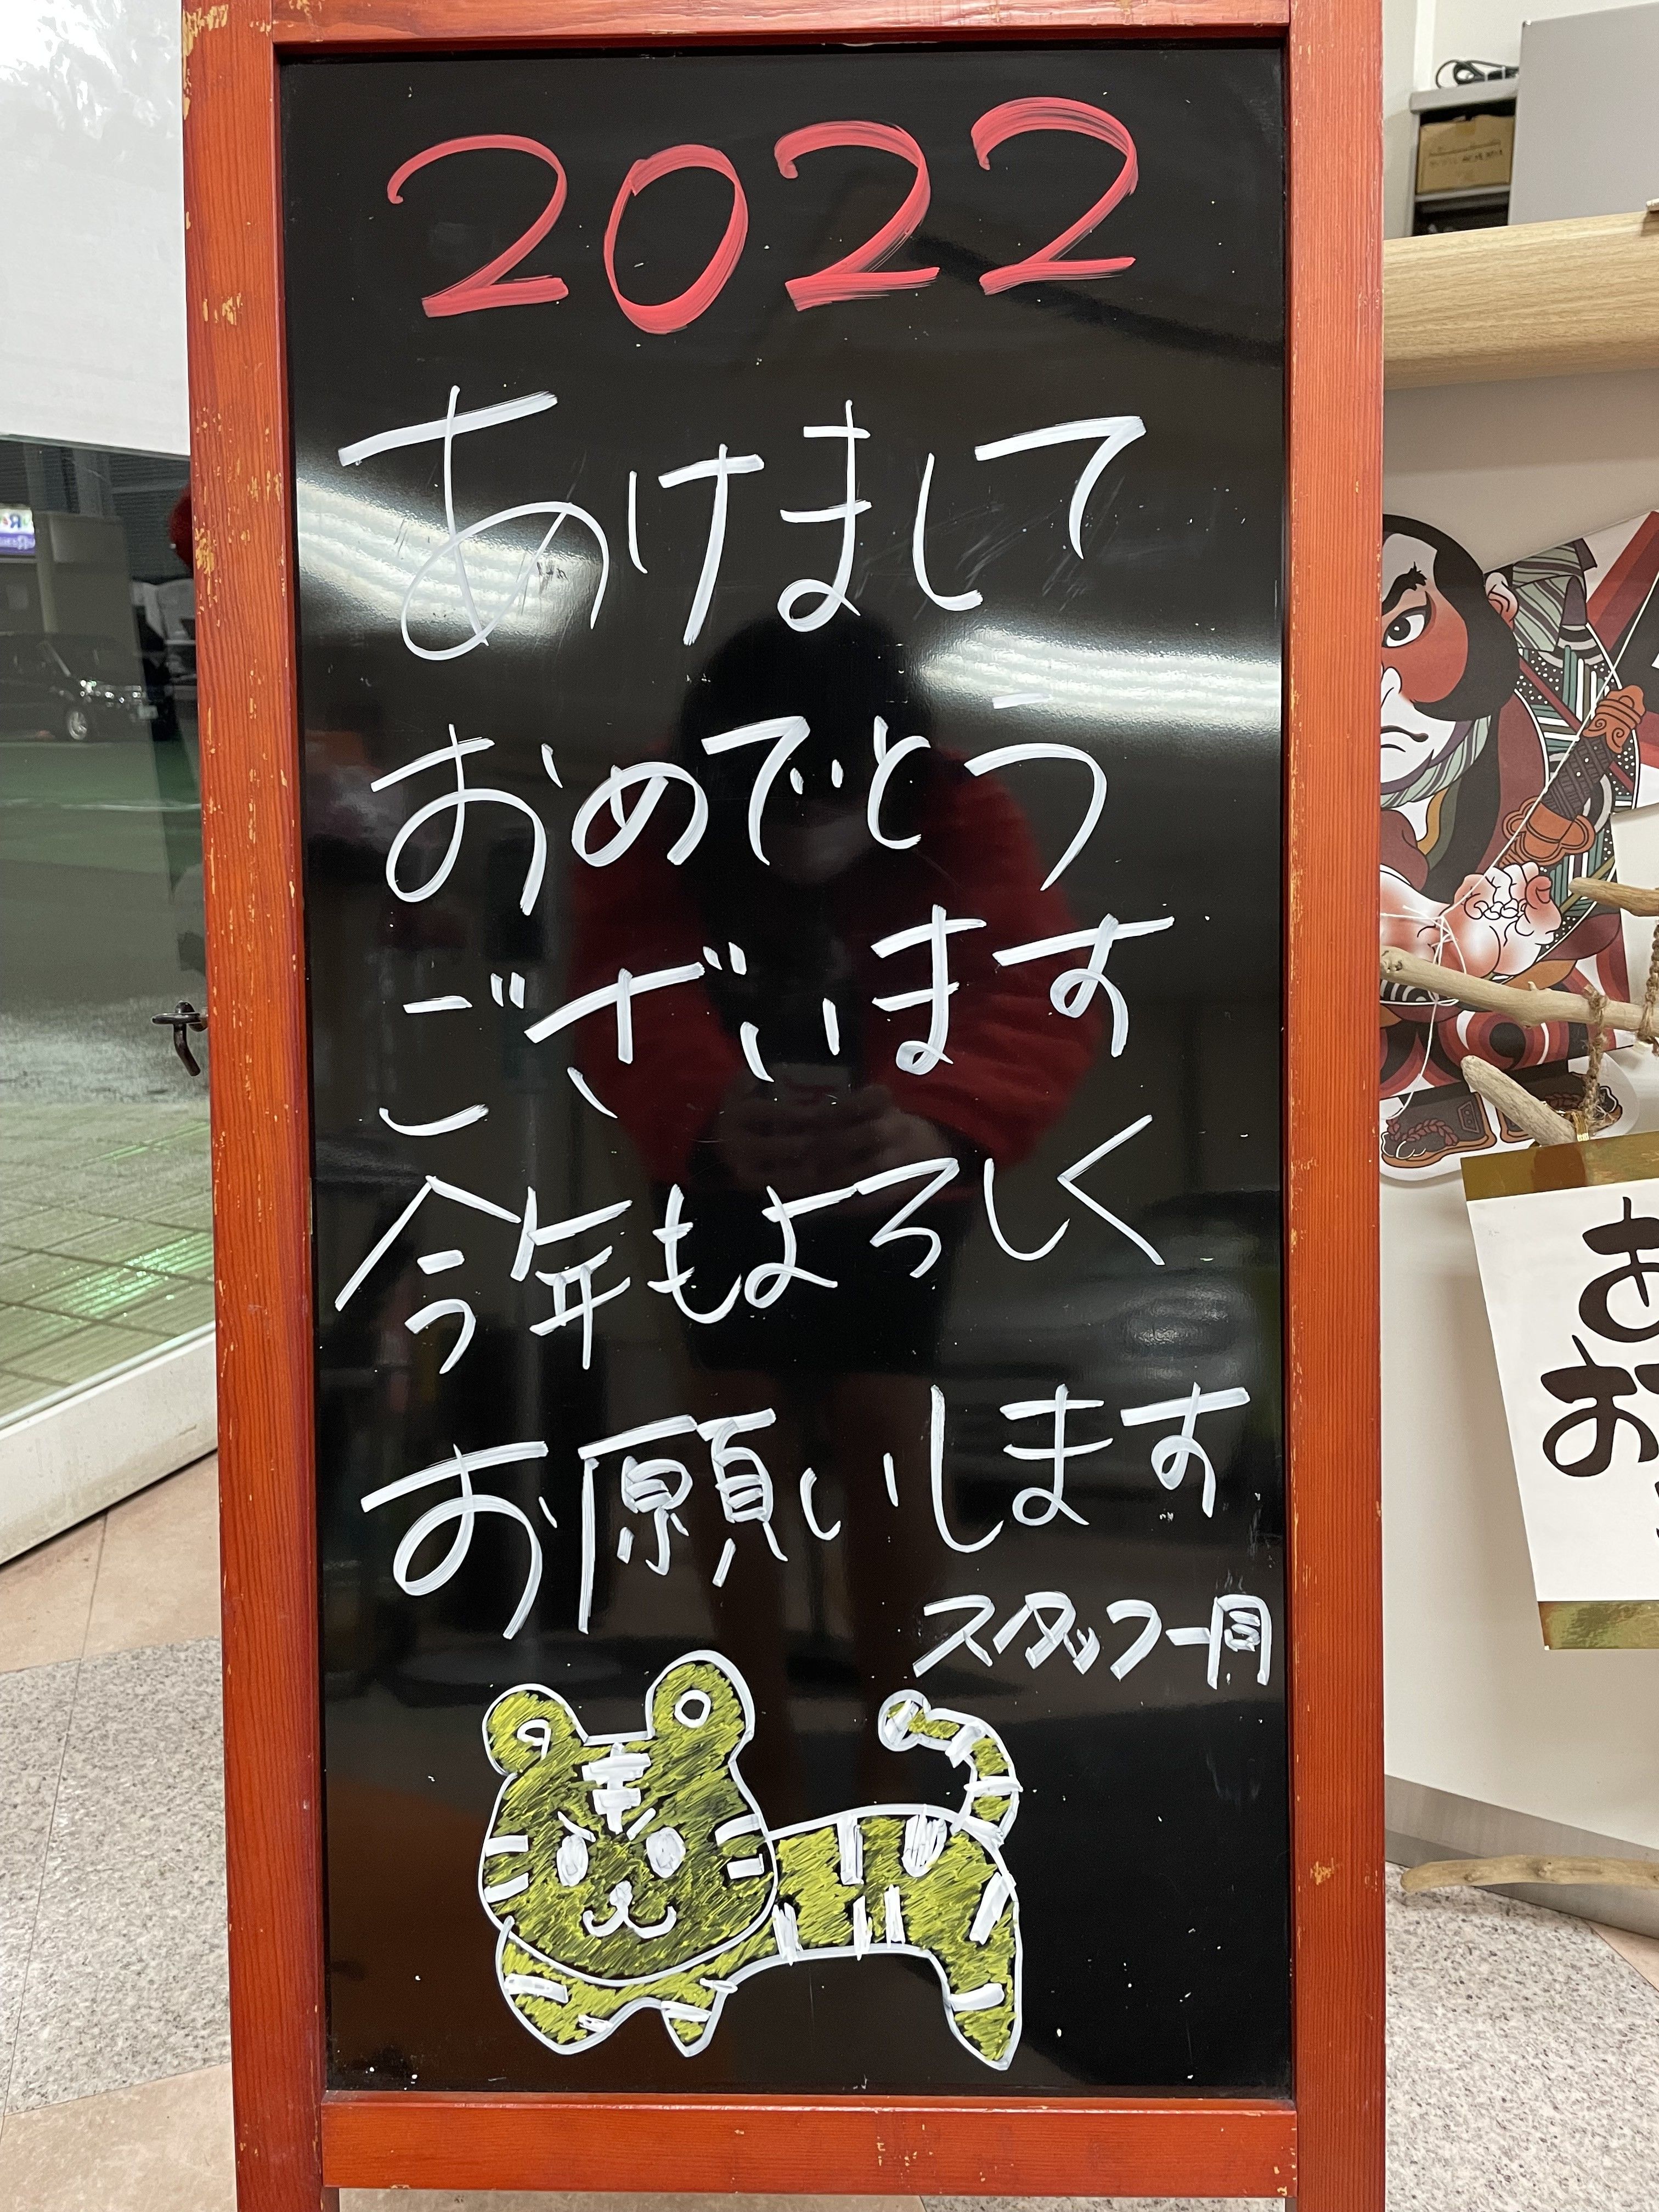 2022
あけまして
おめでとう
ございます
今年もよろしく
お願いします
スタッフ一同